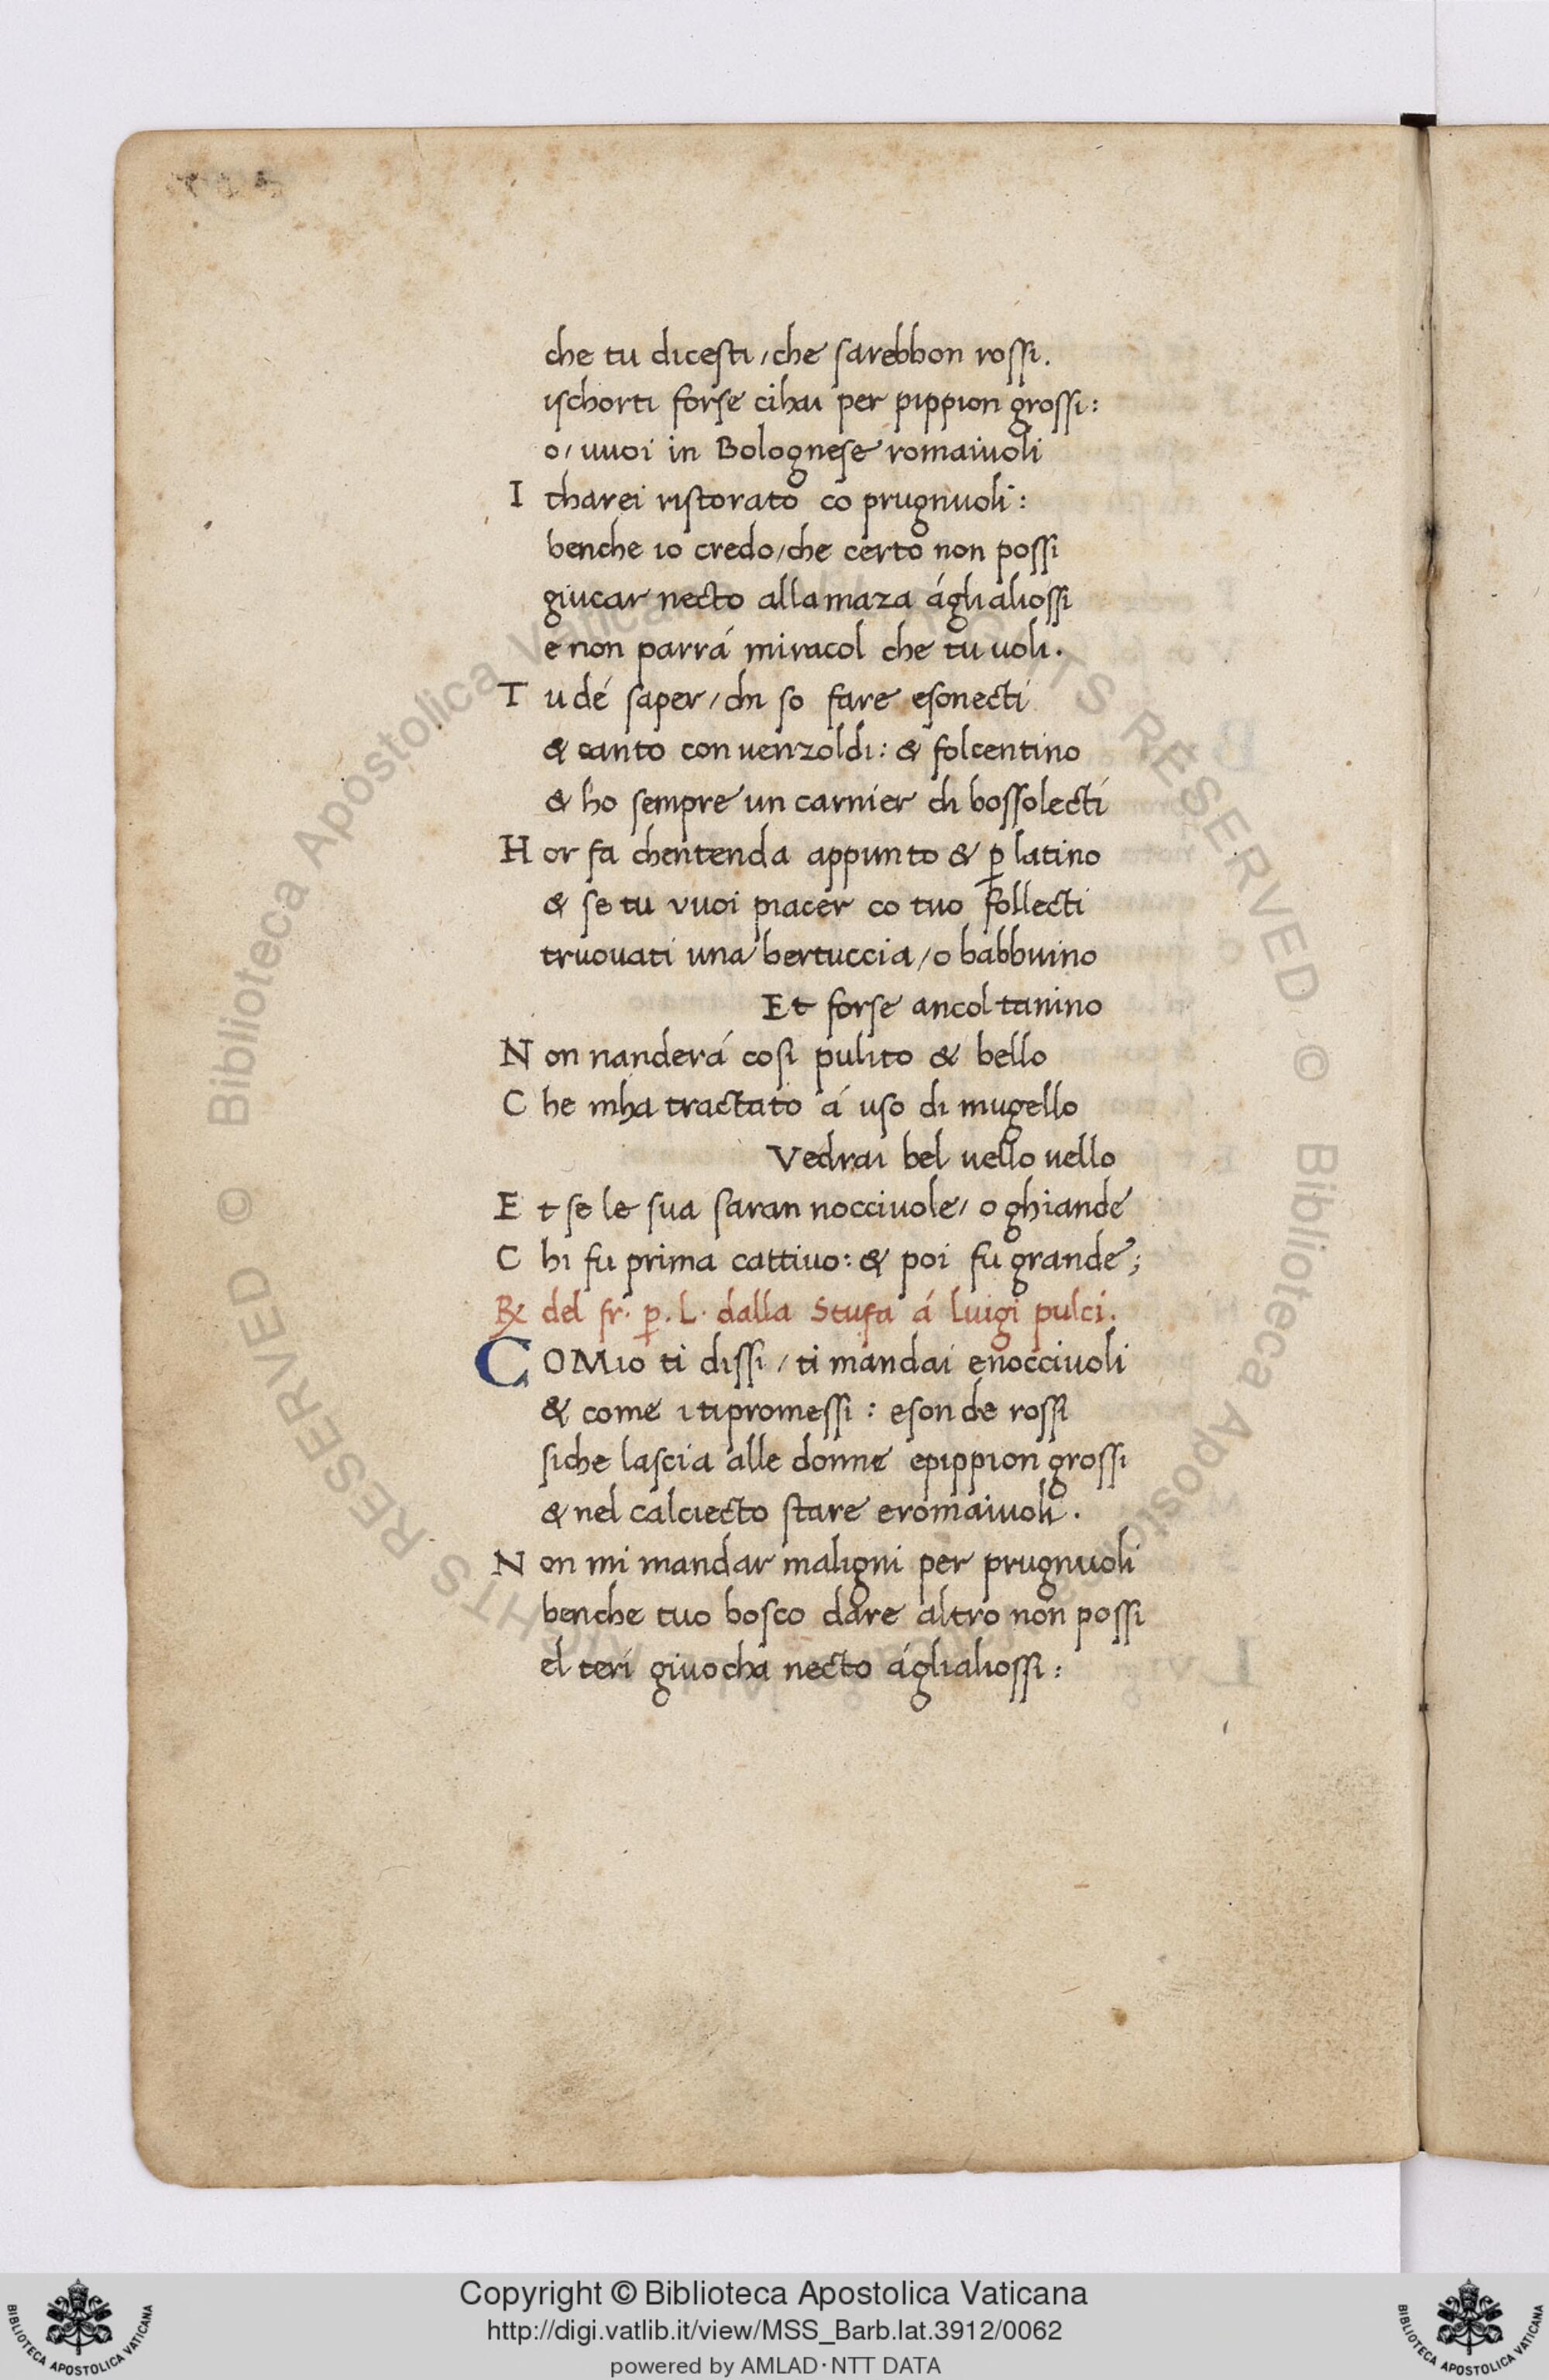 che tu dicesti / che sarebbon rossi.
ischorti forse cihai per pippion grossi:
o / vuoi in Bolognese romaiuoli
I tharei ristorato co prugnuoli:
benche io credo / che certo non possi
giucar necto alla maza ágli aliossi
e non parrá miracol che tu uoli.
T u dé saper / chi so fare esonecti
& canto con uenzoldi: & folcentino
& ho sempre un carnier di bossolecti
H or fa chentenda appunto & ꝑ latino
& se tu vuoi piacer co tuo follecti
truovati una bertuccia / o babbuino
Et forse ancol tanino
N on nanderá cosi pulito & bello
C he mha tractato á uso di mugello
Vedrai bel uello uello
E t se le sua saran nocciuole / o ghiande
C hi fu prima cattivo: & poi fu grande;
℞ del fr. ꝑ. L. dalla Stufa á luigi pulci.
COMIO ti dissi / ti mandai enocciuoli
& come i ti promessi: eson de rossi
siche lascia alle donne epippion grossi
& nel calciecto stare eromaiuoli.
N on mi mandar maligni per prugnuoli
benche tuo bosco dare altro non possi
el teri giuocha necto ágli aliossi:
© Biblioteca Apostolica Vaticana ALL RIGHTS RESERVED
© Biblioteca Apostolica Vaticana ALL RIGHTS RESERVED
Copyright © Biblioteca Apostolica Vaticana
http://digi.vatlib.it/view/MSS_Barb.lat.3912/0062
powered by AMLAD·NTT DATA
BIBLIOTECA APOSTOLICA VATICANA
BIBLIOTECA APOSTOLICA VATICANA